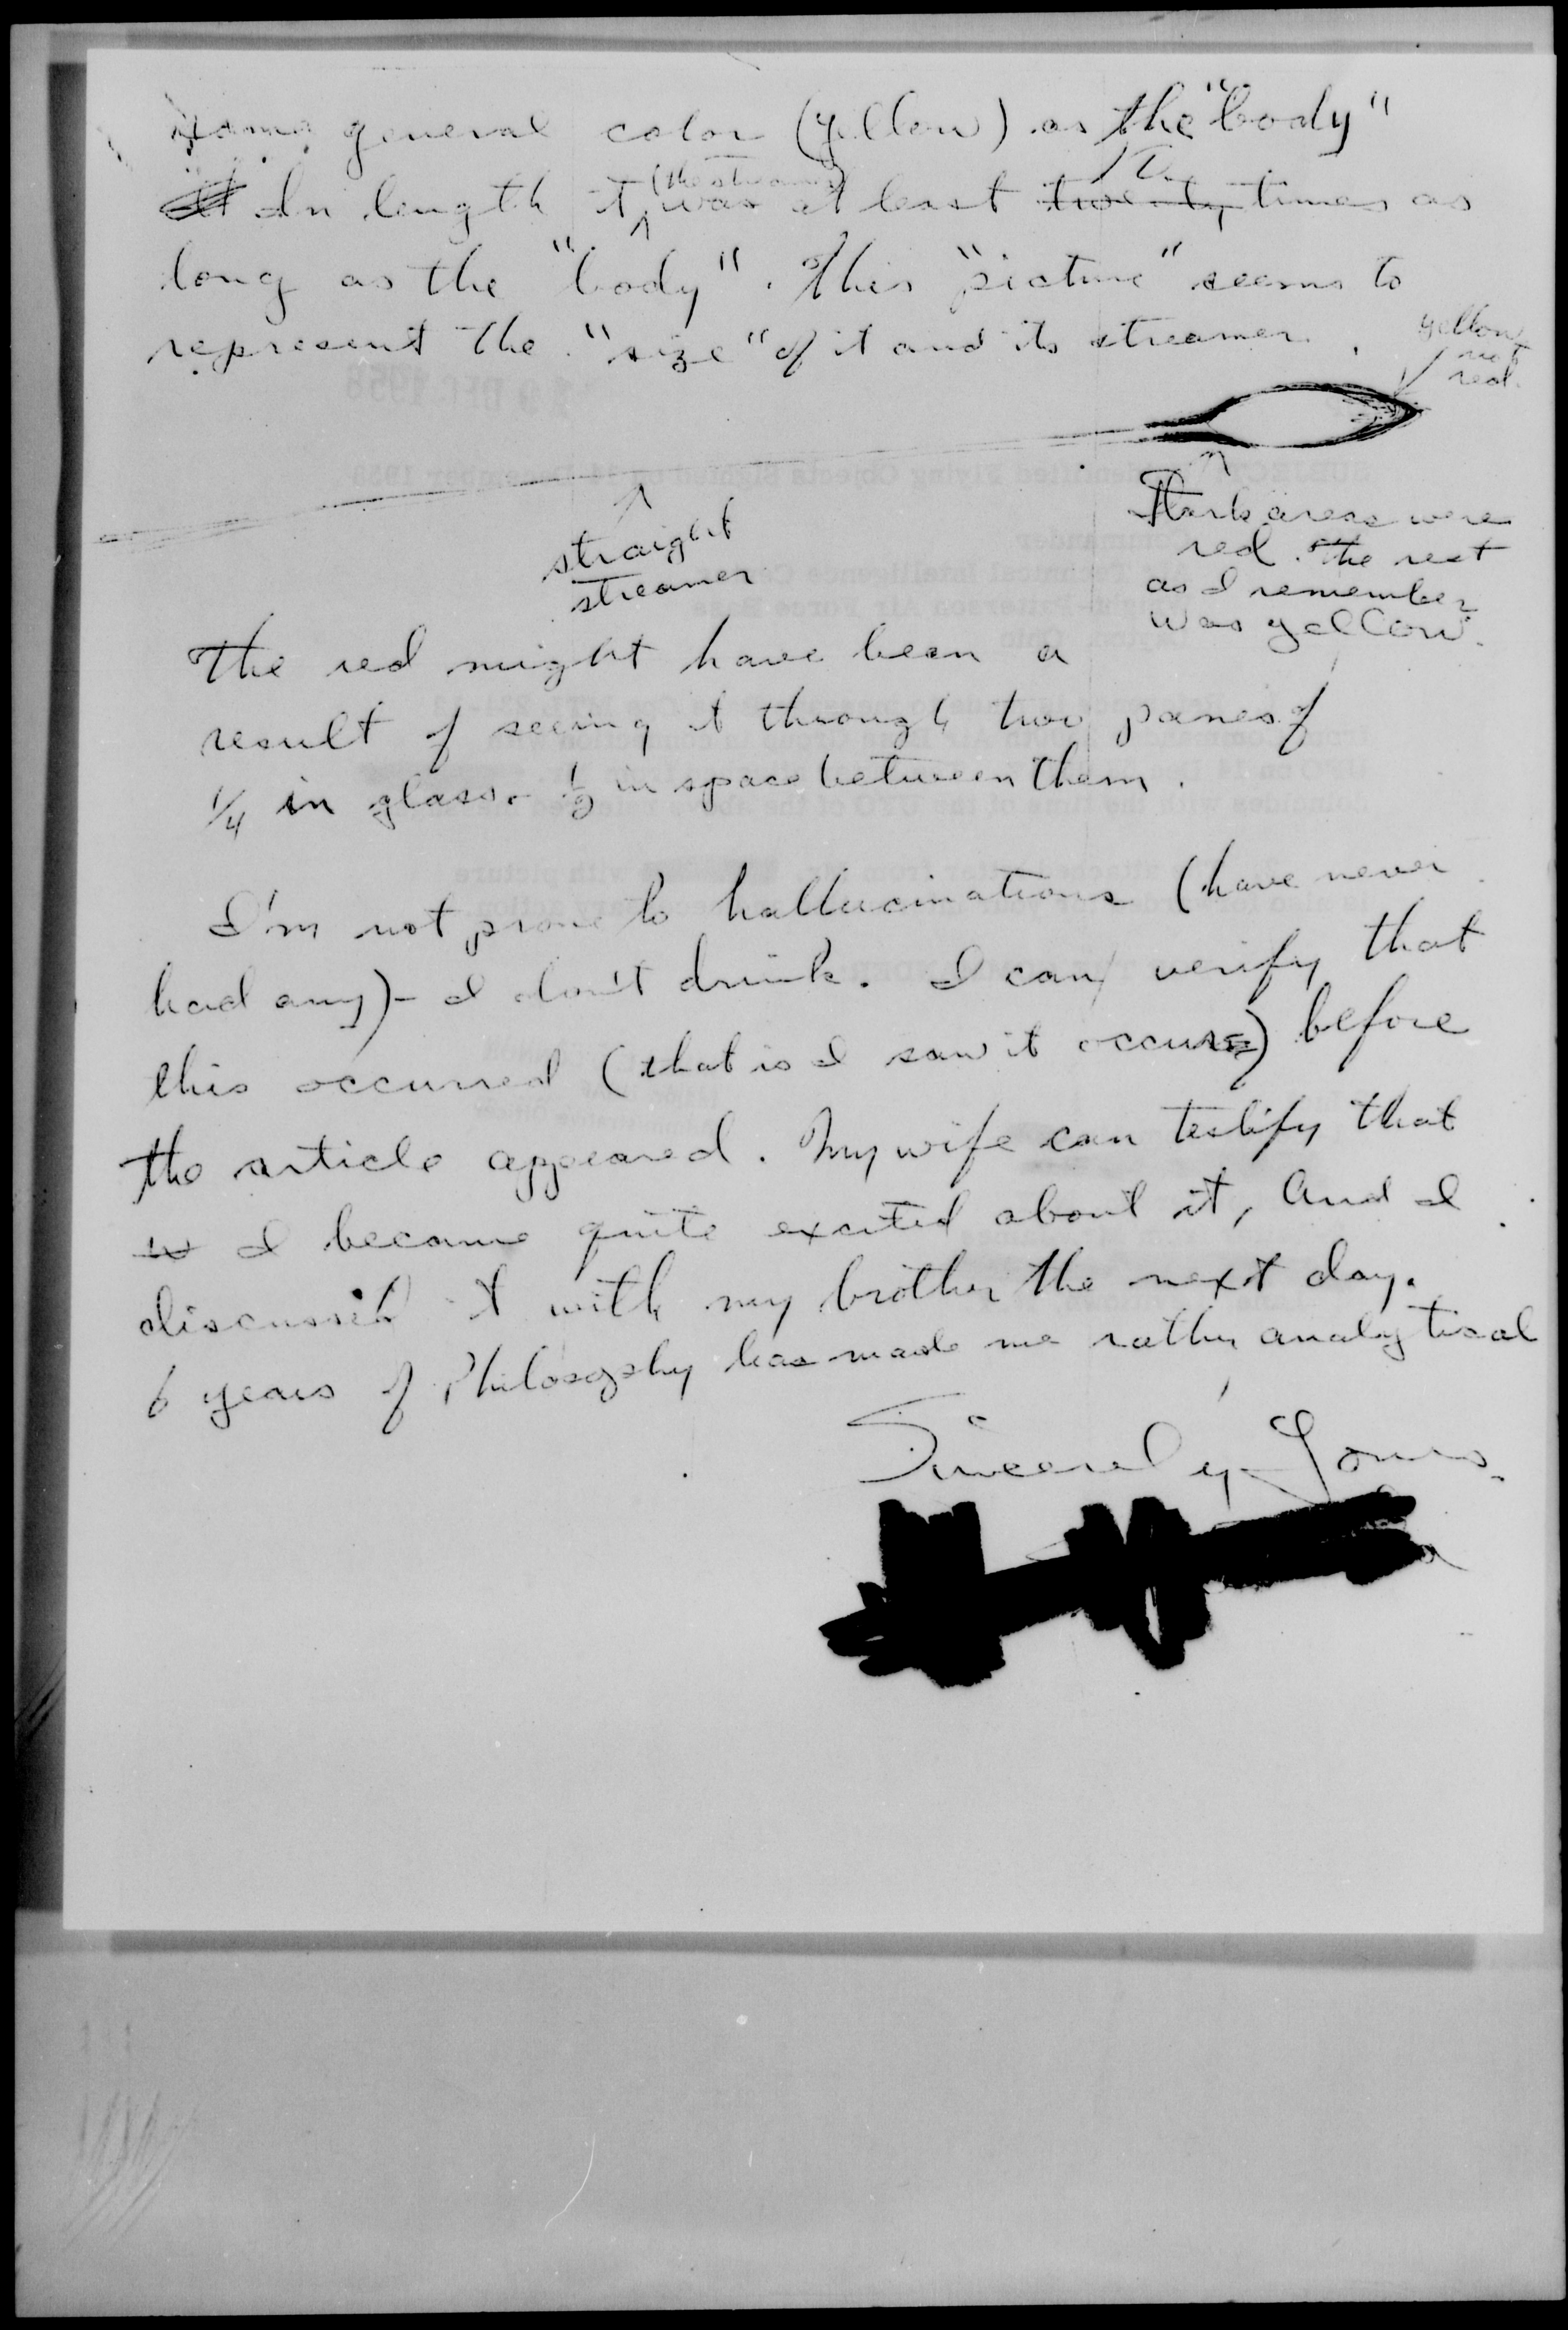 same general color (yellow) as the "body"
In length it (the streamer) was at least twenty times as
long as the "body". This "picture" seems to
represent the "size" of it and its streamer.
yellow
not
red.
straight
streamer
Dark areas were
red. The rest
as I remember
was yellow.
The red might have been a
result of seeing it through two panes of
1/4 in glass - 1/2 in space between them.
I'm not prone to hallucinations (have never
had any) - I don't drink. I can verify that
this occurred (that is I saw it occur) before
the article appeared. My wife can testify that
I became quite excited about it, and I
discussed it with my brother the next day.
6 years of Philosophy has made me rather analytical
Sincerely Yours,